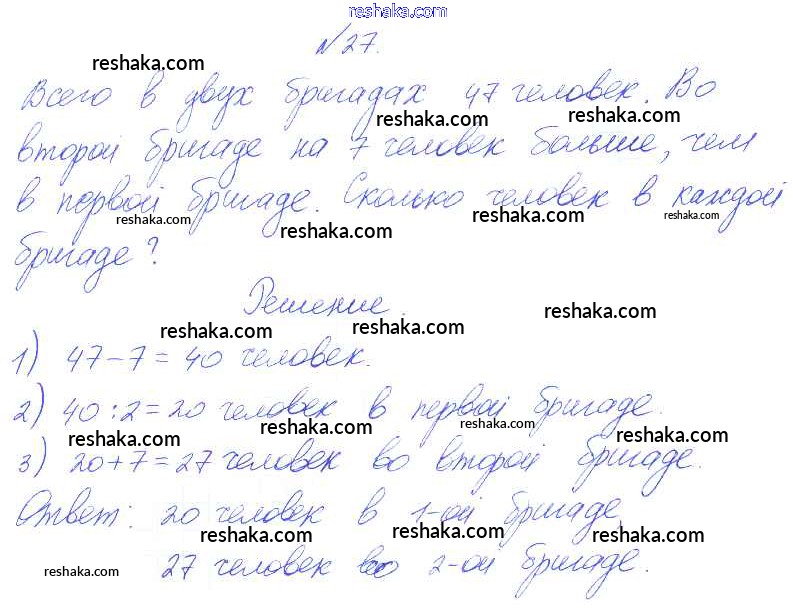 reshaka.com
№27.
reshaka.com
Всего в двух бригадах 47 человек. Во
reshaka.com reshaka.com
второй бригаде на 7 человек больше, чем
в первой бригаде. Сколько человек в каждой
reshaka.com reshaka.com reshaka.com reshaka.com
бригаде?
Решение.
reshaka.com reshaka.com reshaka.com
1) 47-7=40 человек.
2) 40:2=20 человек в первой бригаде.
reshaka.com reshaka.com reshaka.com reshaka.com
3) 20+7=27 человек во второй бригаде.
Ответ: 20 человек в 1-ой бригаде,
reshaka.com reshaka.com
27 человек во 2-ой бригаде.
reshaka.com